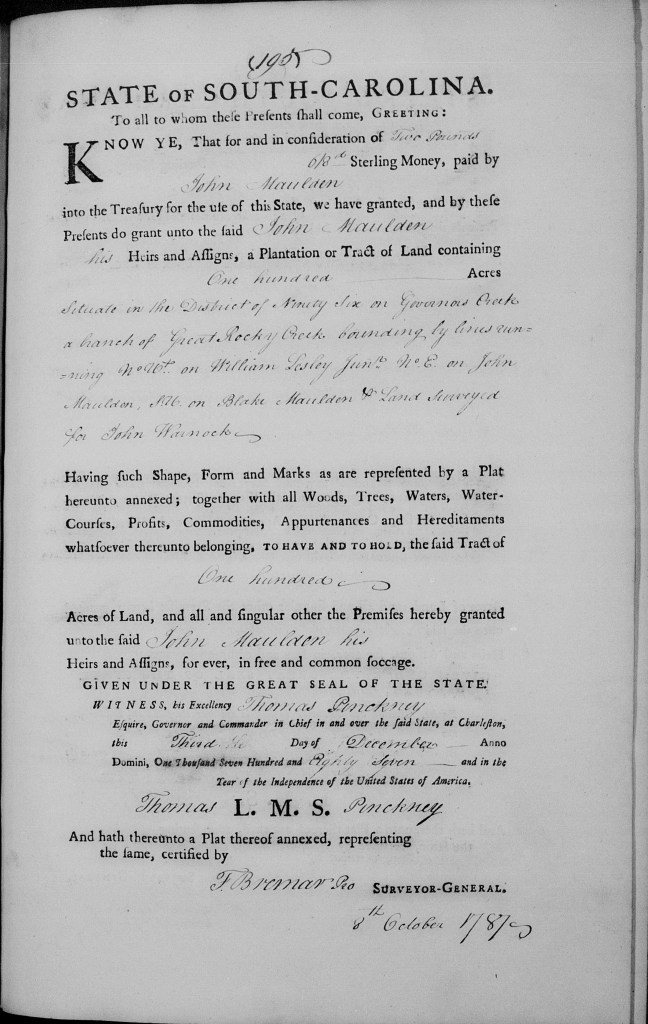 (195)
STATE OF SOUTH-CAROLINA.
To all to whom these Presents shall come, GREETING:
KNOW YE, That for and in consideration of Two Pounds
Sterling Money, paid by
John Maulden
into the Treasury for the use of this State, we have granted, and by these
Presents do grant unto the said John Maulden
his Heirs and Assigns, a Plantation or Tract of Land containing
One hundred Acres
Situate in the District of Ninety Six on Governors Creek
a branch of Great Rocky Creek bounding by lines run-
-ning No. Wt. on William Lesley Junr. No. E. on John
Mauldon, on Blake Maulden & Land Surveyed
for John Warnock
Having such Shape, Form and Marks as are represented by a Plat
hereunto annexed; together with all Woods, Trees, Waters, Water-
Courses, Profits, Commodities, Appurtenances and Hereditaments
whatsoever thereunto belonging, TO HAVE AND TO HOLD, the said Tract of
One hundred
Acres of Land, and all and singular other the Premises hereby granted
unto the said John Mauldon his
Heirs and Assigns, for ever, in free and common soccage.
GIVEN UNDER THE GREAT SEAL OF THE STATE.
WITNESS, his Excellency Thomas Pinckney
Esquire, Governor and Commander in Chief in and over the said State, at Charleston,
this Third Day of December Anno
Domini, One Thousand Seven Hundred and Eighty Seven and in the
Year of the Independence of the United States of America.
Thomas L. M. S. Pinckney
And hath thereunto a Plat thereof annexed, representing
the same, certified by
F. Bremar Pro SURVEYOR-GENERAL.
8th October 1787